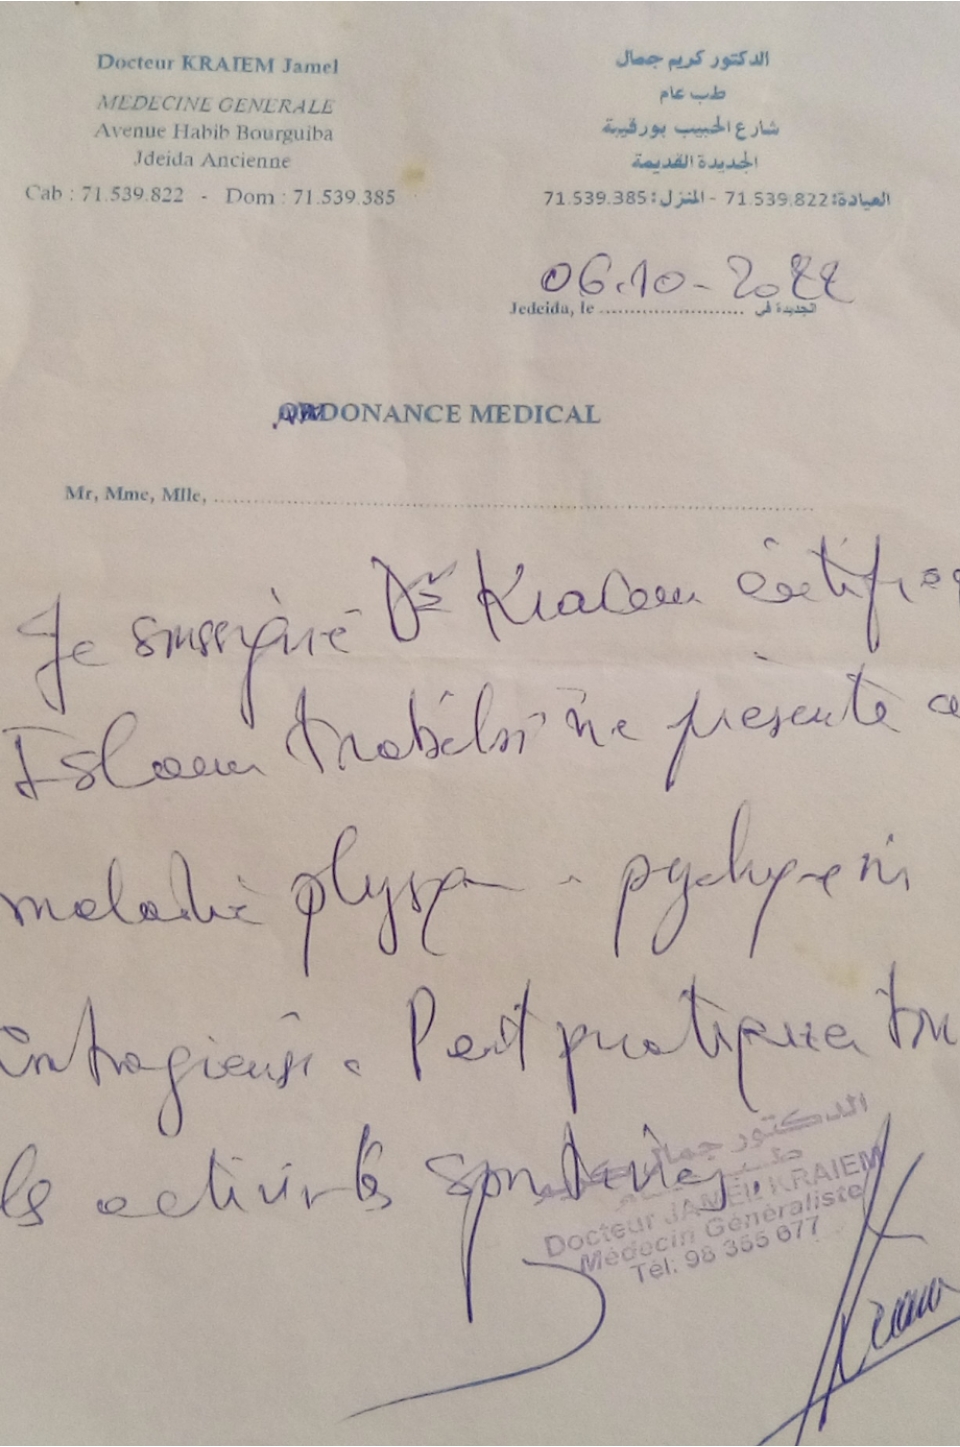 Docteur KRAIEM Jamel
MEDECINE GENERALE
Avenue Habib Bourguiba
Jdeida Ancienne
Cab : 71.539.822 - Dom : 71.539.385
الدكتور كريم جمال
طب عام
شارع الحبيب بورقيبة
الجديدة القديمة
العيادة: 71.539.822 - المنزل: 71.539.385
06.10-2022
Jedeida, le ........................ الجديدة في
ORDONANCE MEDICAL
Mr, Mme, Mlle, ................................................
Je soussigné Dr Kraiem certifie
Islam trabelsi ne présente
maladie physique - psychique ni
contagieuse. Peut pratiquer
les activités sportives.
الدكتور جمال
طب عام
Docteur JAMEL KRAIEM
Médecin Généraliste
Tél: 98 355 677
Kraiem